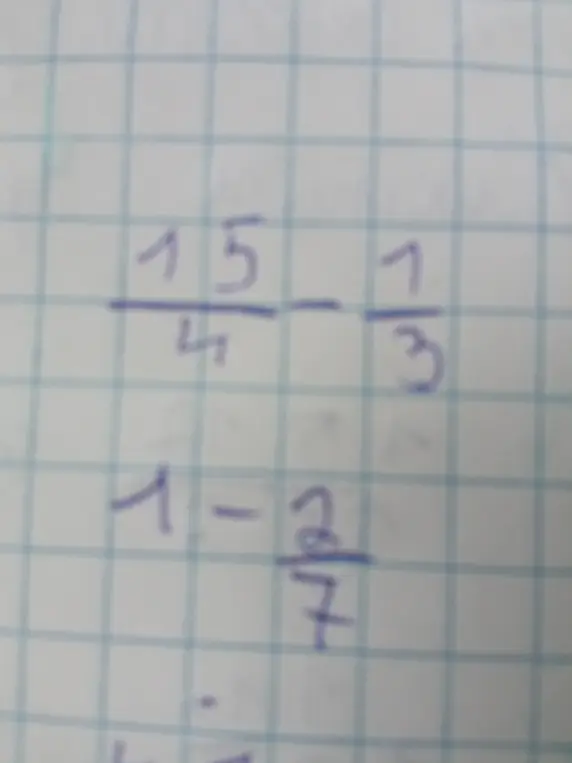 15/4 - 1/3
1 - 2/7